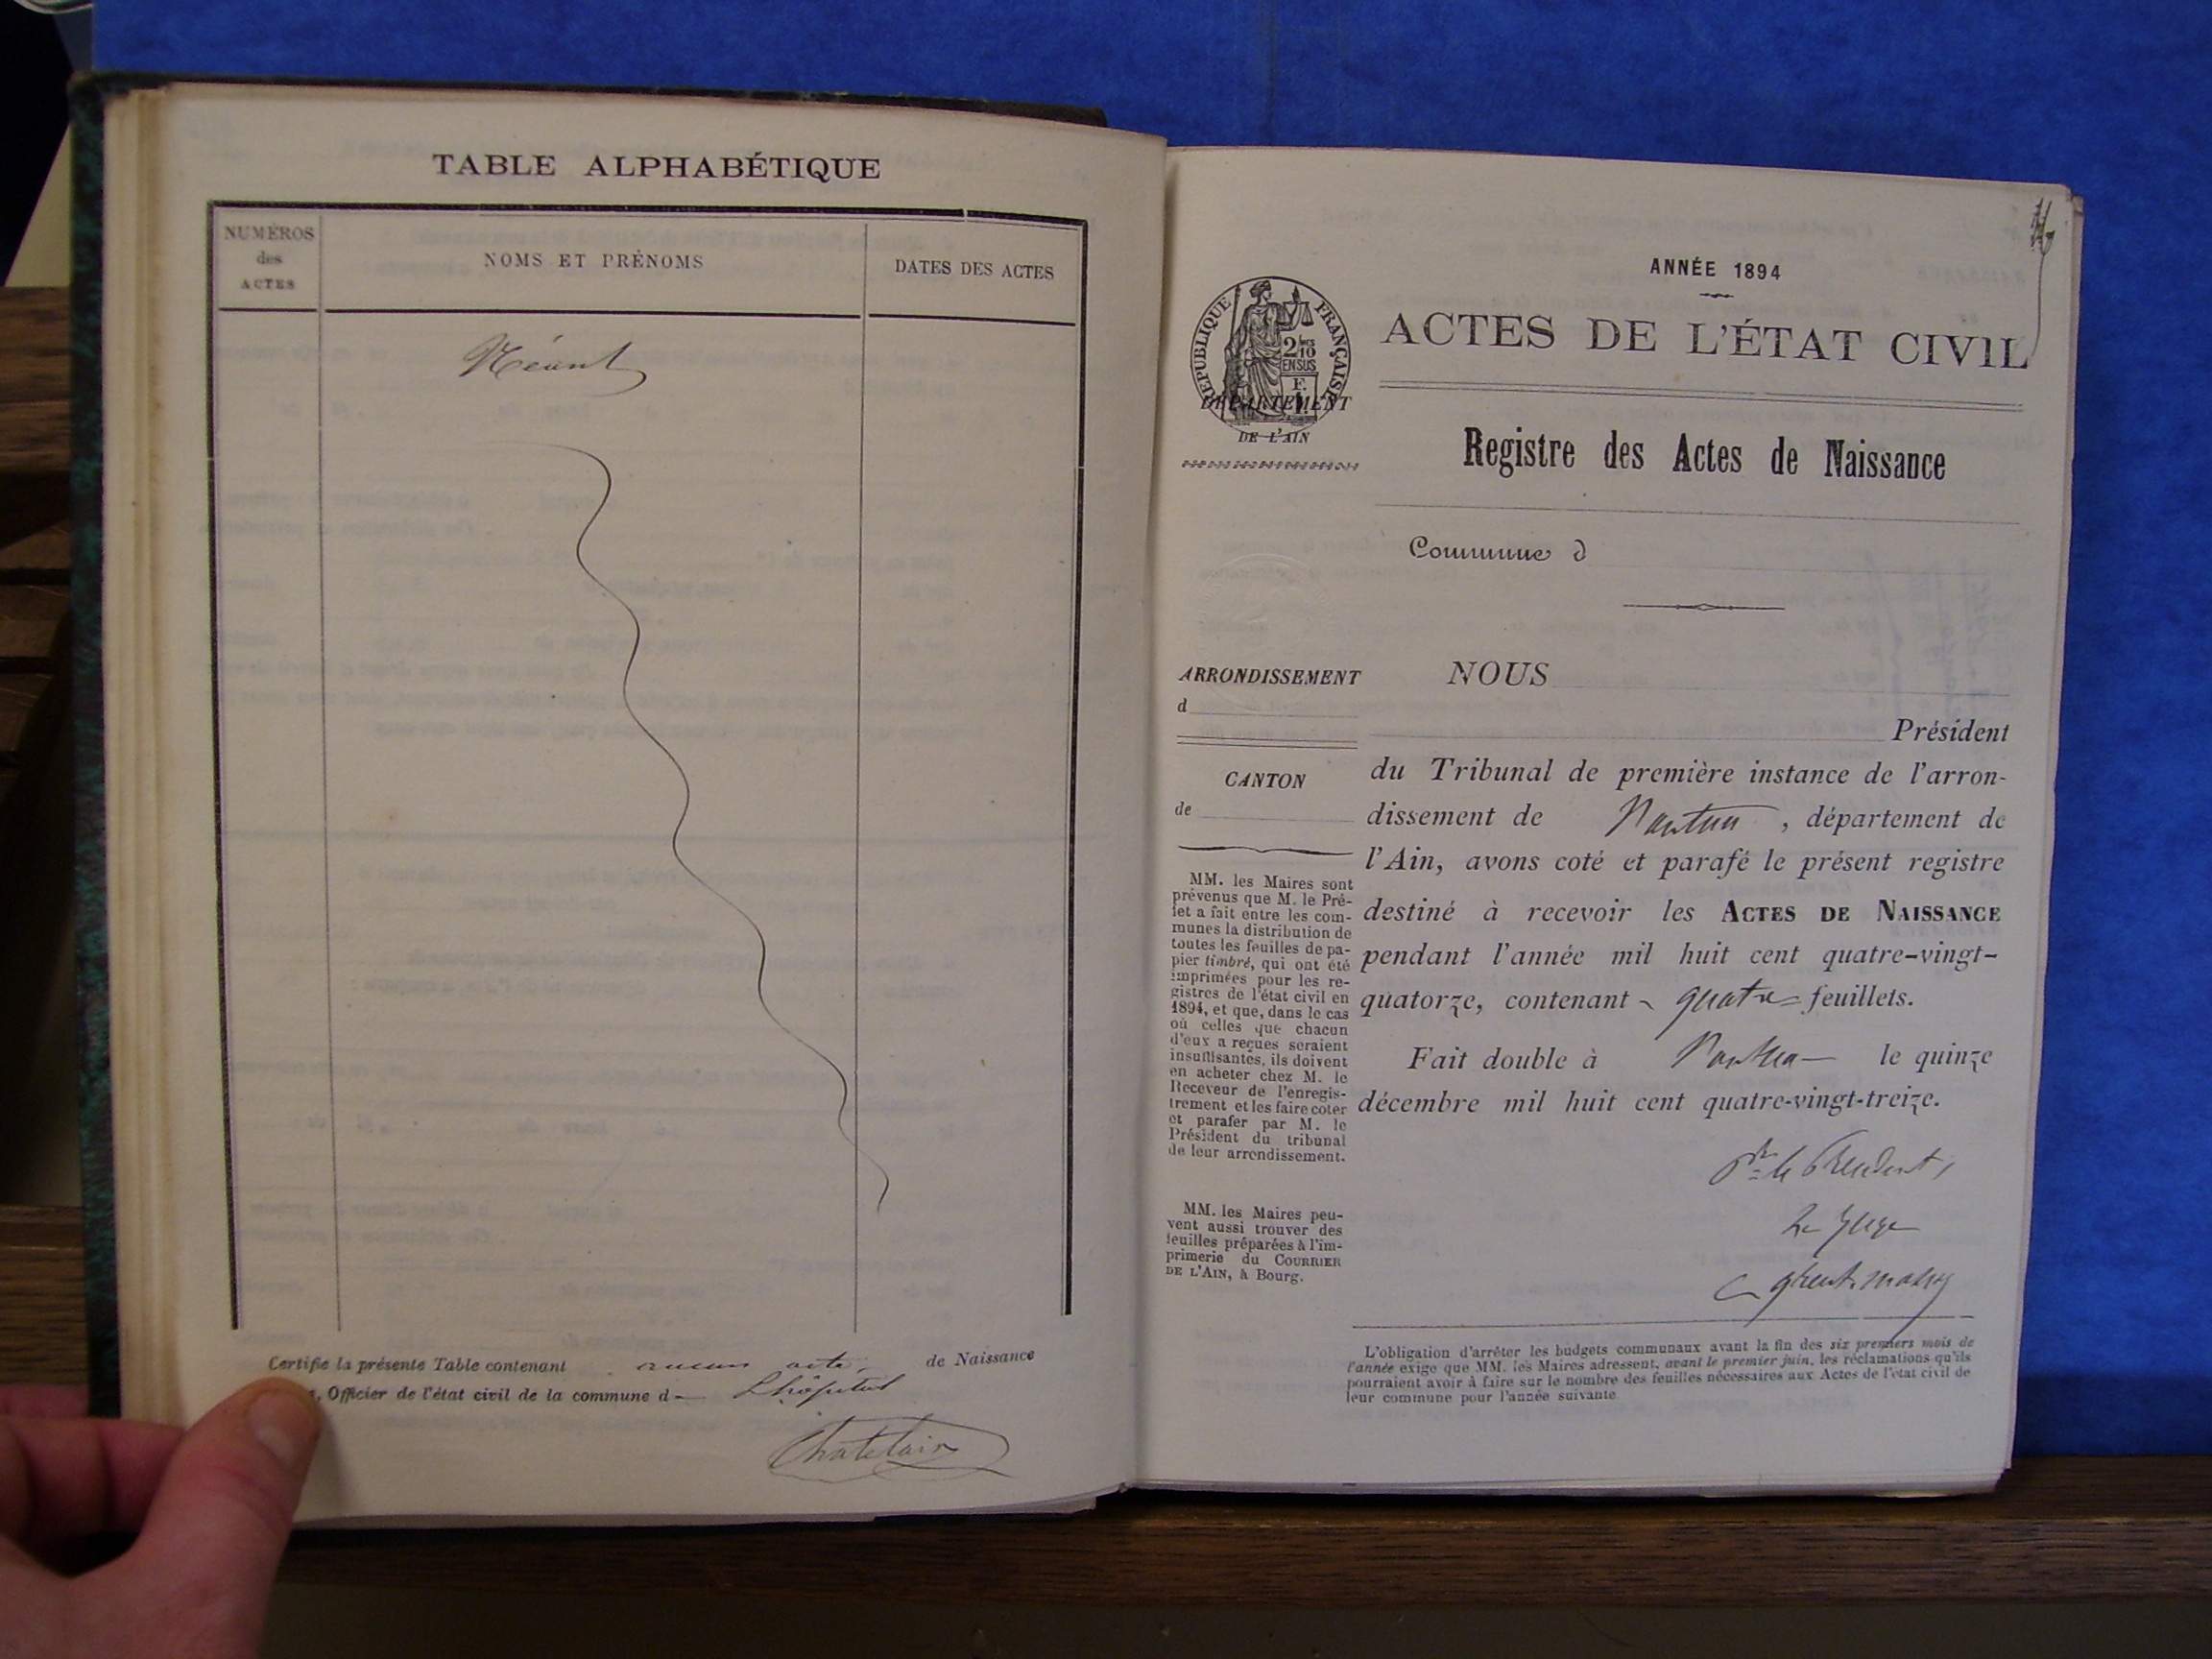 TABLE ALPHABÉTIQUE
NUMÉROS
des
ACTES
NOMS ET PRÉNOMS
DATES DES ACTES
Néant
Certifie la présente Table contenant aucun acte, de Naissance
, Officier de l'état civil de la commune d Lhôpital
Chatelain
ANNÉE 1894
ACTES DE L'ÉTAT CIVIL
RÉPUBLIQUE FRANÇAISE
2/10
EN SUS
DÉPARTEMENT
DE L'AIN
Registre des Actes de Naissance
Commune d
ARRONDISSEMENT
d
CANTON
de
MM. les Maires sont
prévenus que M. le Pré-
fet a fait entre les com-
munes la distribution de
toutes les feuilles de pa-
pier timbré, qui ont été
imprimées pour les re-
gistres de l'état civil en
1894, et que, dans le cas
où celles que chacun
d'eux a reçues seraient
insuffisantes, ils doivent
en acheter chez M. le
Receveur de l'enregis-
trement et les faire coter
et parafer par M. le
Président du tribunal
de leur arrondissement.
MM. les Maires peu-
vent aussi trouver des
feuilles préparées à l'im-
primerie du COURRIER
DE L'AIN, à Bourg.
NOUS
Président
du Tribunal de première instance de l'arron-
dissement de Nantua, département de
l'Ain, avons coté et parafé le présent registre
destiné à recevoir les ACTES DE NAISSANCE
pendant l'année mil huit cent quatre-vingt-
quatorze, contenant quatre feuillets.
Fait double à Nantua le quinze
décembre mil huit cent quatre-vingt-treize.
Pr le Président,
Le Juge
L'obligation d'arrêter les budgets communaux avant la fin des six premiers mois de
l'année exige que MM. les Maires adressent, avant le premier juin, les réclamations qu'ils
pourraient avoir à faire sur le nombre des feuilles nécessaires aux Actes de l'état civil de
leur commune pour l'année suivante